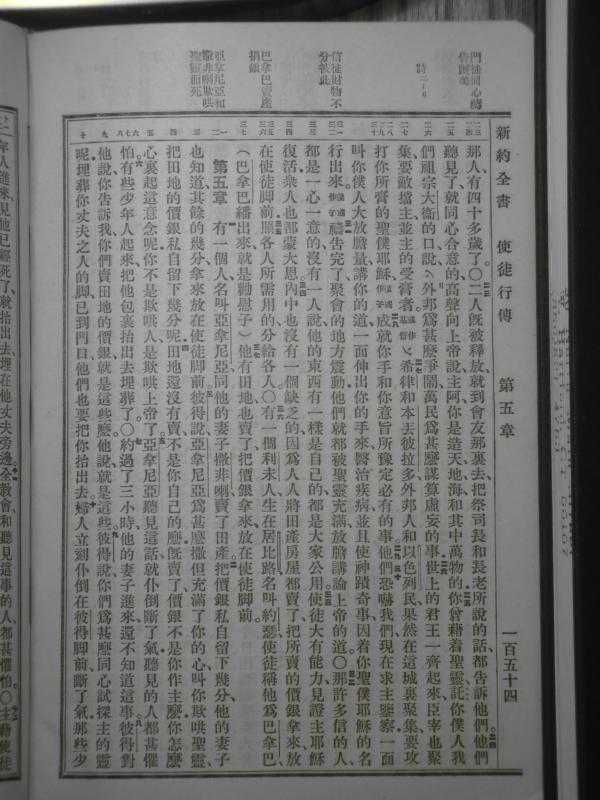 新約全書 使徒行傳 第五章 一百五十四
門徒同心禱
信徒財物不
分彼此
巴拿巴賣產
捐銀
亞拿尼亞和
撒非喇欺哄
聖靈而死
那人有四十多歲了〇二人既被釋放就到會友那裏去把祭司長和長老所說的話都告訴他們他們
聽見了就同心合意的高聲向上帝說主阿你是造天地海和其中萬物的你曾藉着聖靈託你僕人我
們祖宗大衛的口說外邦爲甚麼爭鬧萬民爲甚麼謀算虛妄的事世上的君王一齊起來臣宰也聚
集要敵擋主並主的受膏者希律和本丟彼拉多外邦人和以色列民果然在這城裏聚集要攻
打你所膏的聖僕耶穌成就你手和你意旨所豫定必有的事他們恐嚇我們現在求主鑒察一面
叫你僕人大放膽量講你的道一面伸出你的手來醫治疾病並且使神蹟奇事因着你聖僕耶穌的名
行出來禱告完了聚會的地方震動他們就都被聖靈充滿放膽講論上帝的道〇那許多信的人
都是一心一意的沒有一人說他的東西有一樣是自己的都是大家公用使徒大有能力見證主耶穌
復活衆人也都蒙大恩內中也沒有一個缺乏的因爲人人將田產房屋都賣了把所賣的價銀拿來放
在使徒脚前照各人所需用的分給各人〇有一個利未人生在居比路名叫約瑟使徒稱他爲巴拿巴
(巴拿巴繙出來就是勸慰子)他有田地也賣了把價銀拿來放在使徒脚前
第五章 有一個人名叫亞拿尼亞同他的妻子撒非喇賣了田產把價銀私自留下幾分他的妻子
也知道其餘的幾分拿來放在使徒脚前彼得說亞拿尼亞爲甚麼撒但充滿了你的心叫你欺哄聖靈
把田地的價銀私自留下幾分呢田地還沒有賣不是你自己的麼既賣了價銀不是你作主麼你怎麼
心裏起這意念呢你不是欺哄人是欺哄上帝了亞拿尼亞聽見這話就仆倒斷了氣聽見的人都甚懼
怕有些少年人起來把他包裹抬出去埋葬了〇約過了三小時他的妻子進來還不知道這事彼得對
他說你告訴我你們賣田地的價銀就是這些麼他說就是這些彼得說你們爲甚麼同心試探主的靈
呢埋葬你丈夫之人的脚已到門口他們也要把你抬出去婦人立刻仆倒在彼得脚前斷了氣那些少
年人進來見他已經死了就抬出去埋在他丈夫旁邊全教會和聽見這事的人都甚懼怕〇主藉使徒